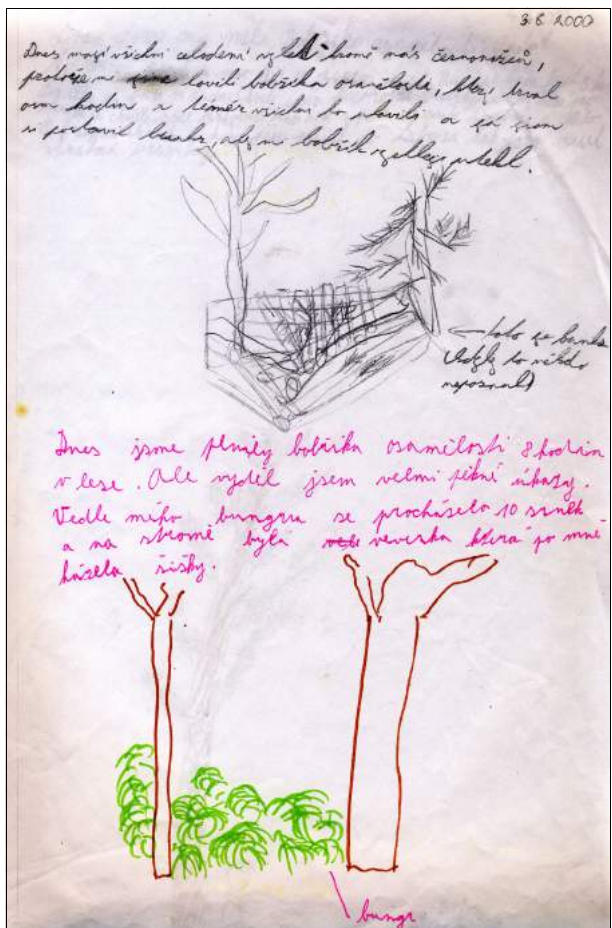 3.8.2000
Dnes mají všichni celodení výlet kromě nás černonožců,
protože m jsme lovili bobříka osamělosti, který trval
osm hodin a téměř všichni ho ulovili a já jsem
si postavil bunkr, aby m bobřík nikam utekl.
toto je bunkr
(kdyby to nikdo
nepoznal)
Dnes jsme plnily bobříka osamělosti 8 hodin
v lese. Ale vyděl jsem velmi pěkné úkazy.
Vedle mího bungru se procházelo 10 srnek
a na stromě byla veverka která po mně
házela šišky.
bungr